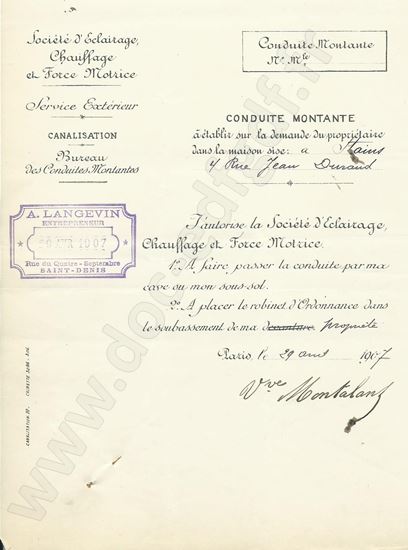 Société d'Eclairage,
Chauffage
et Force Motrice
Service Extérieur
CANALISATION
Bureau
des Conduites Montantes
Conduite Montante
No Mle
CONDUITE MONTANTE
à établir sur la demande du propriétaire
dans la maison sise: a Stains
4 Rue Jean Durand
A. LANGEVIN
ENTREPRENEUR
AVR 1907
Rue du Quatre-Septembre
SAINT-DENIS
J'autorise la Société d'Eclairage,
Chauffage et Force Motrice.
1º A faire passer la conduite par ma
cave ou mon sous-sol.
2º A placer le robinet d'Ordonnance dans
le soubassement de ma devanture propriété
Paris, le 20 avril 1907
Vve Montalant
www.doc-edfgdf.fr